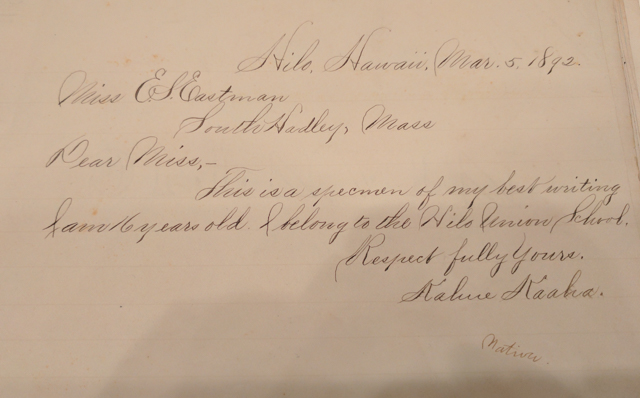 Hilo, Hawaii, Mar. 5, 1892.
Miss E.S. Eastman
South Hadley, Mass
Dear Miss,-
This is a specmen of my best writing
I am 16 years old. I belong to the Hilo Union School.
Respect fully Yours.
Kahue Kaaha.
Native.